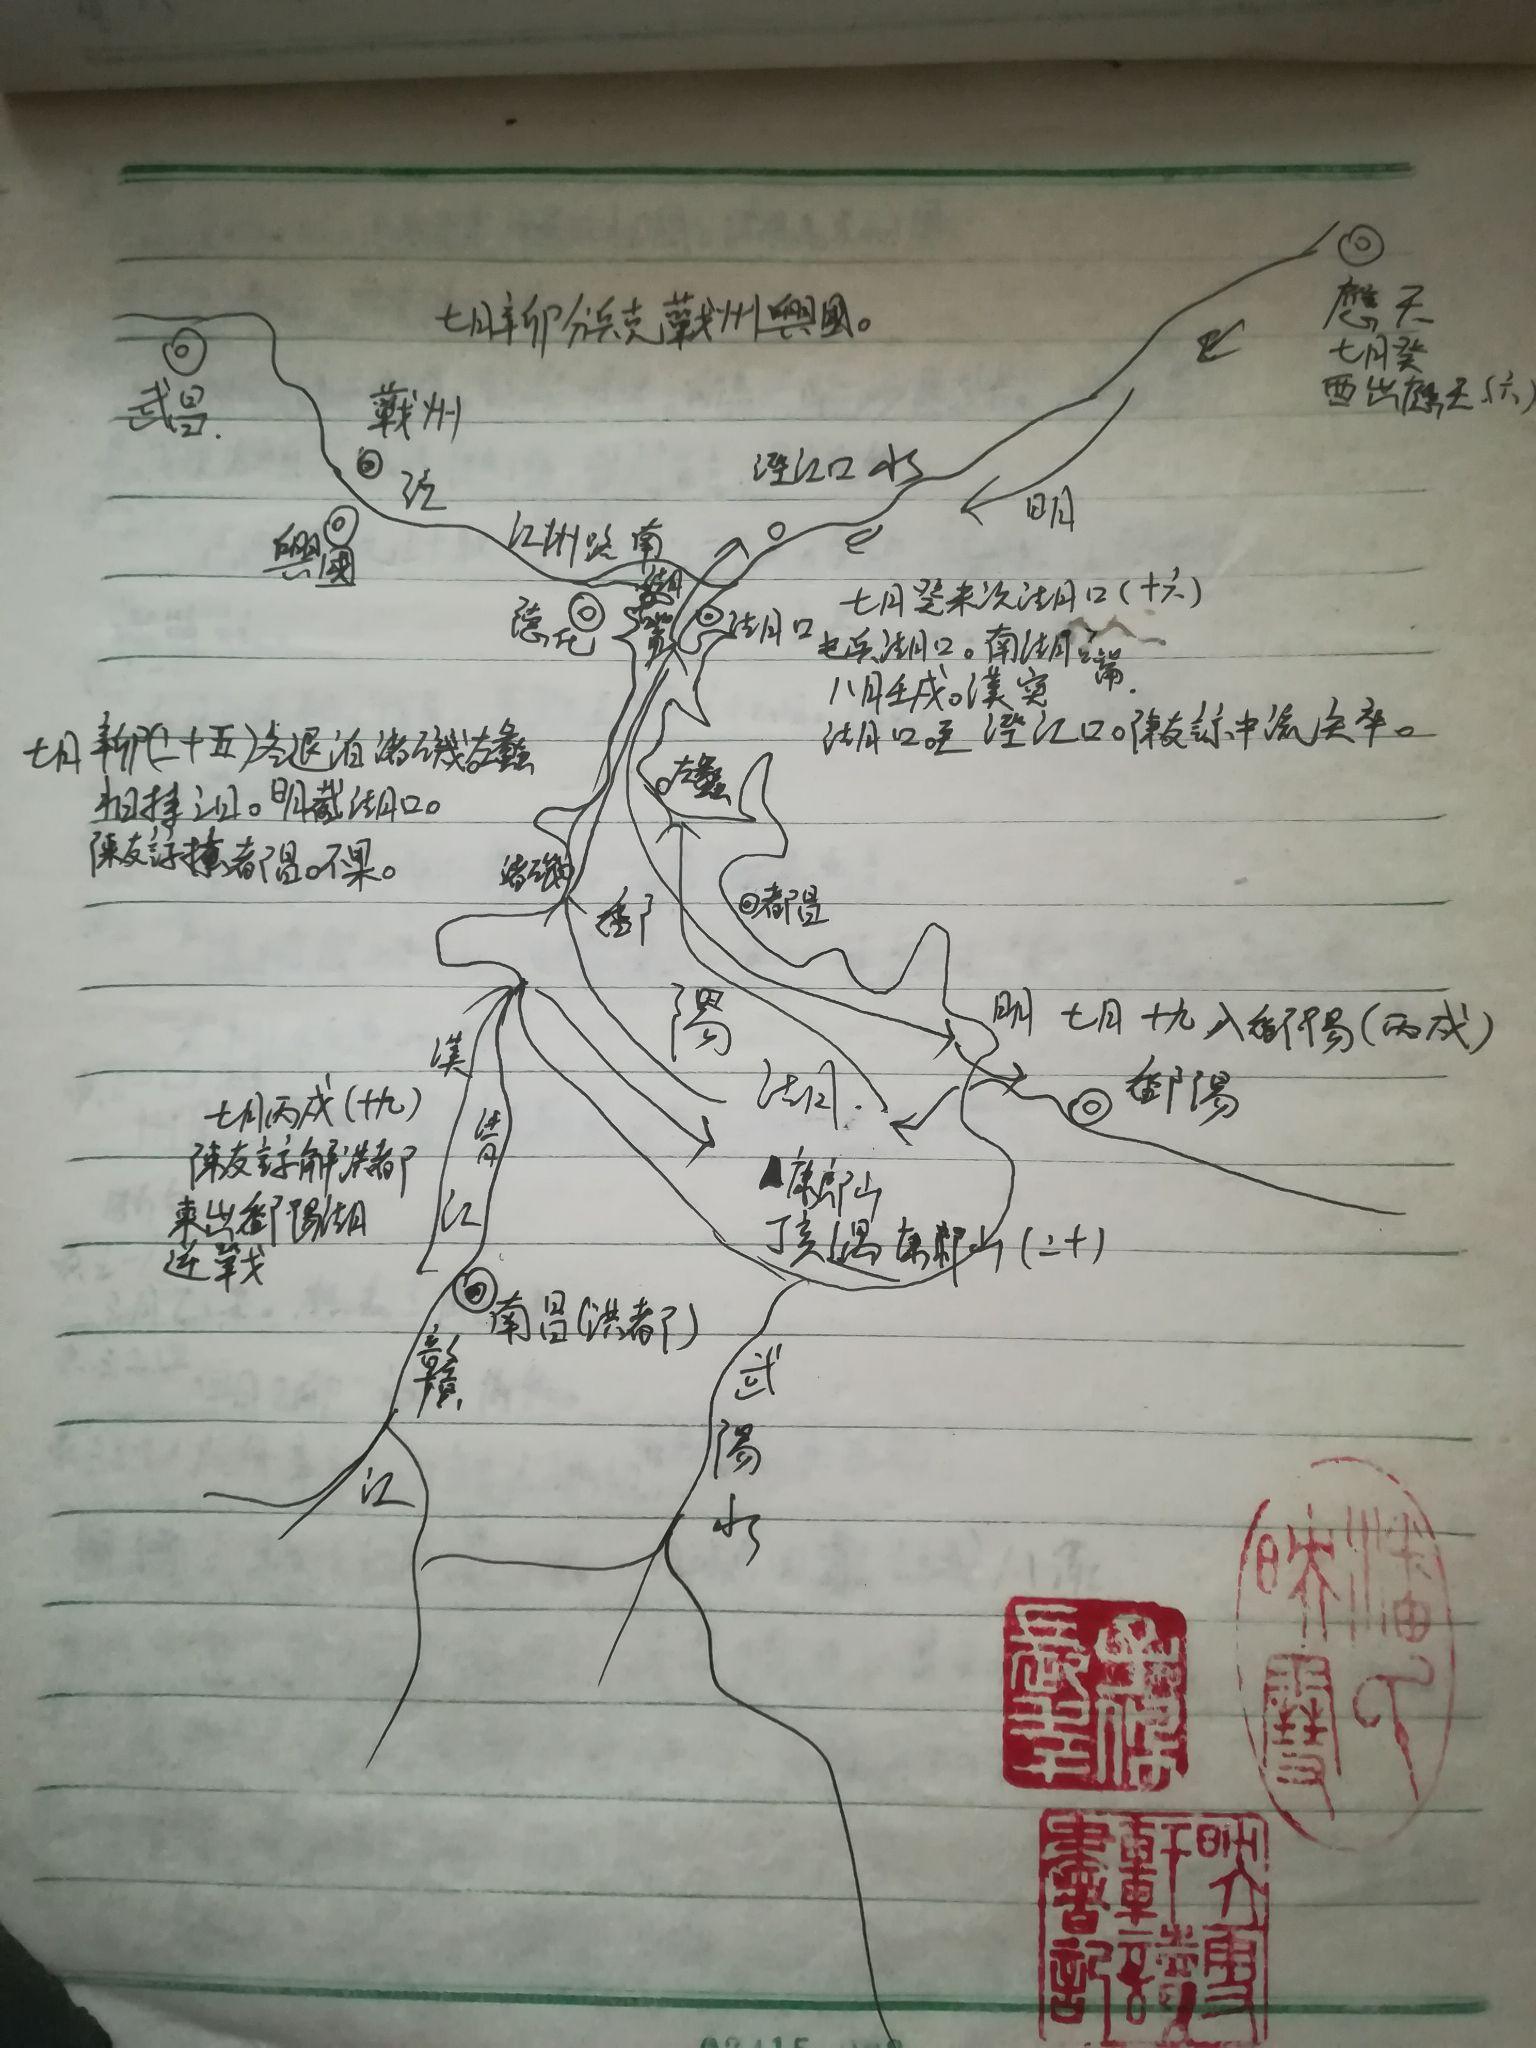 七月辛卯分兵克蘄州興國。
應天
七月癸
酉出應天(六)
武昌.
蘄州
江
涇江口
水
明
興國
江州路
南
湖
觜
湖口
七月癸未次湖口(十六)
屯兵湖口。南湖觜.
八月壬戌。漢突
湖口。至涇江口。陳友諒中流矢卒。
七月辛卯(二十五)各退泊渚磯左蠡
相持三日。明截湖口。
陳友諒 都昌。不果。
左蠡
渚磯
都昌
鄱
陽
湖.
明 七月十九入鄱陽(丙戌)
鄱陽
漢
七月丙戌(十九)
陳友諒解洪都
東出鄱陽湖
逆戰
江
康郎山
丁亥遇康郎山(二十)
南昌(洪都)
贛
江
武
陽
水